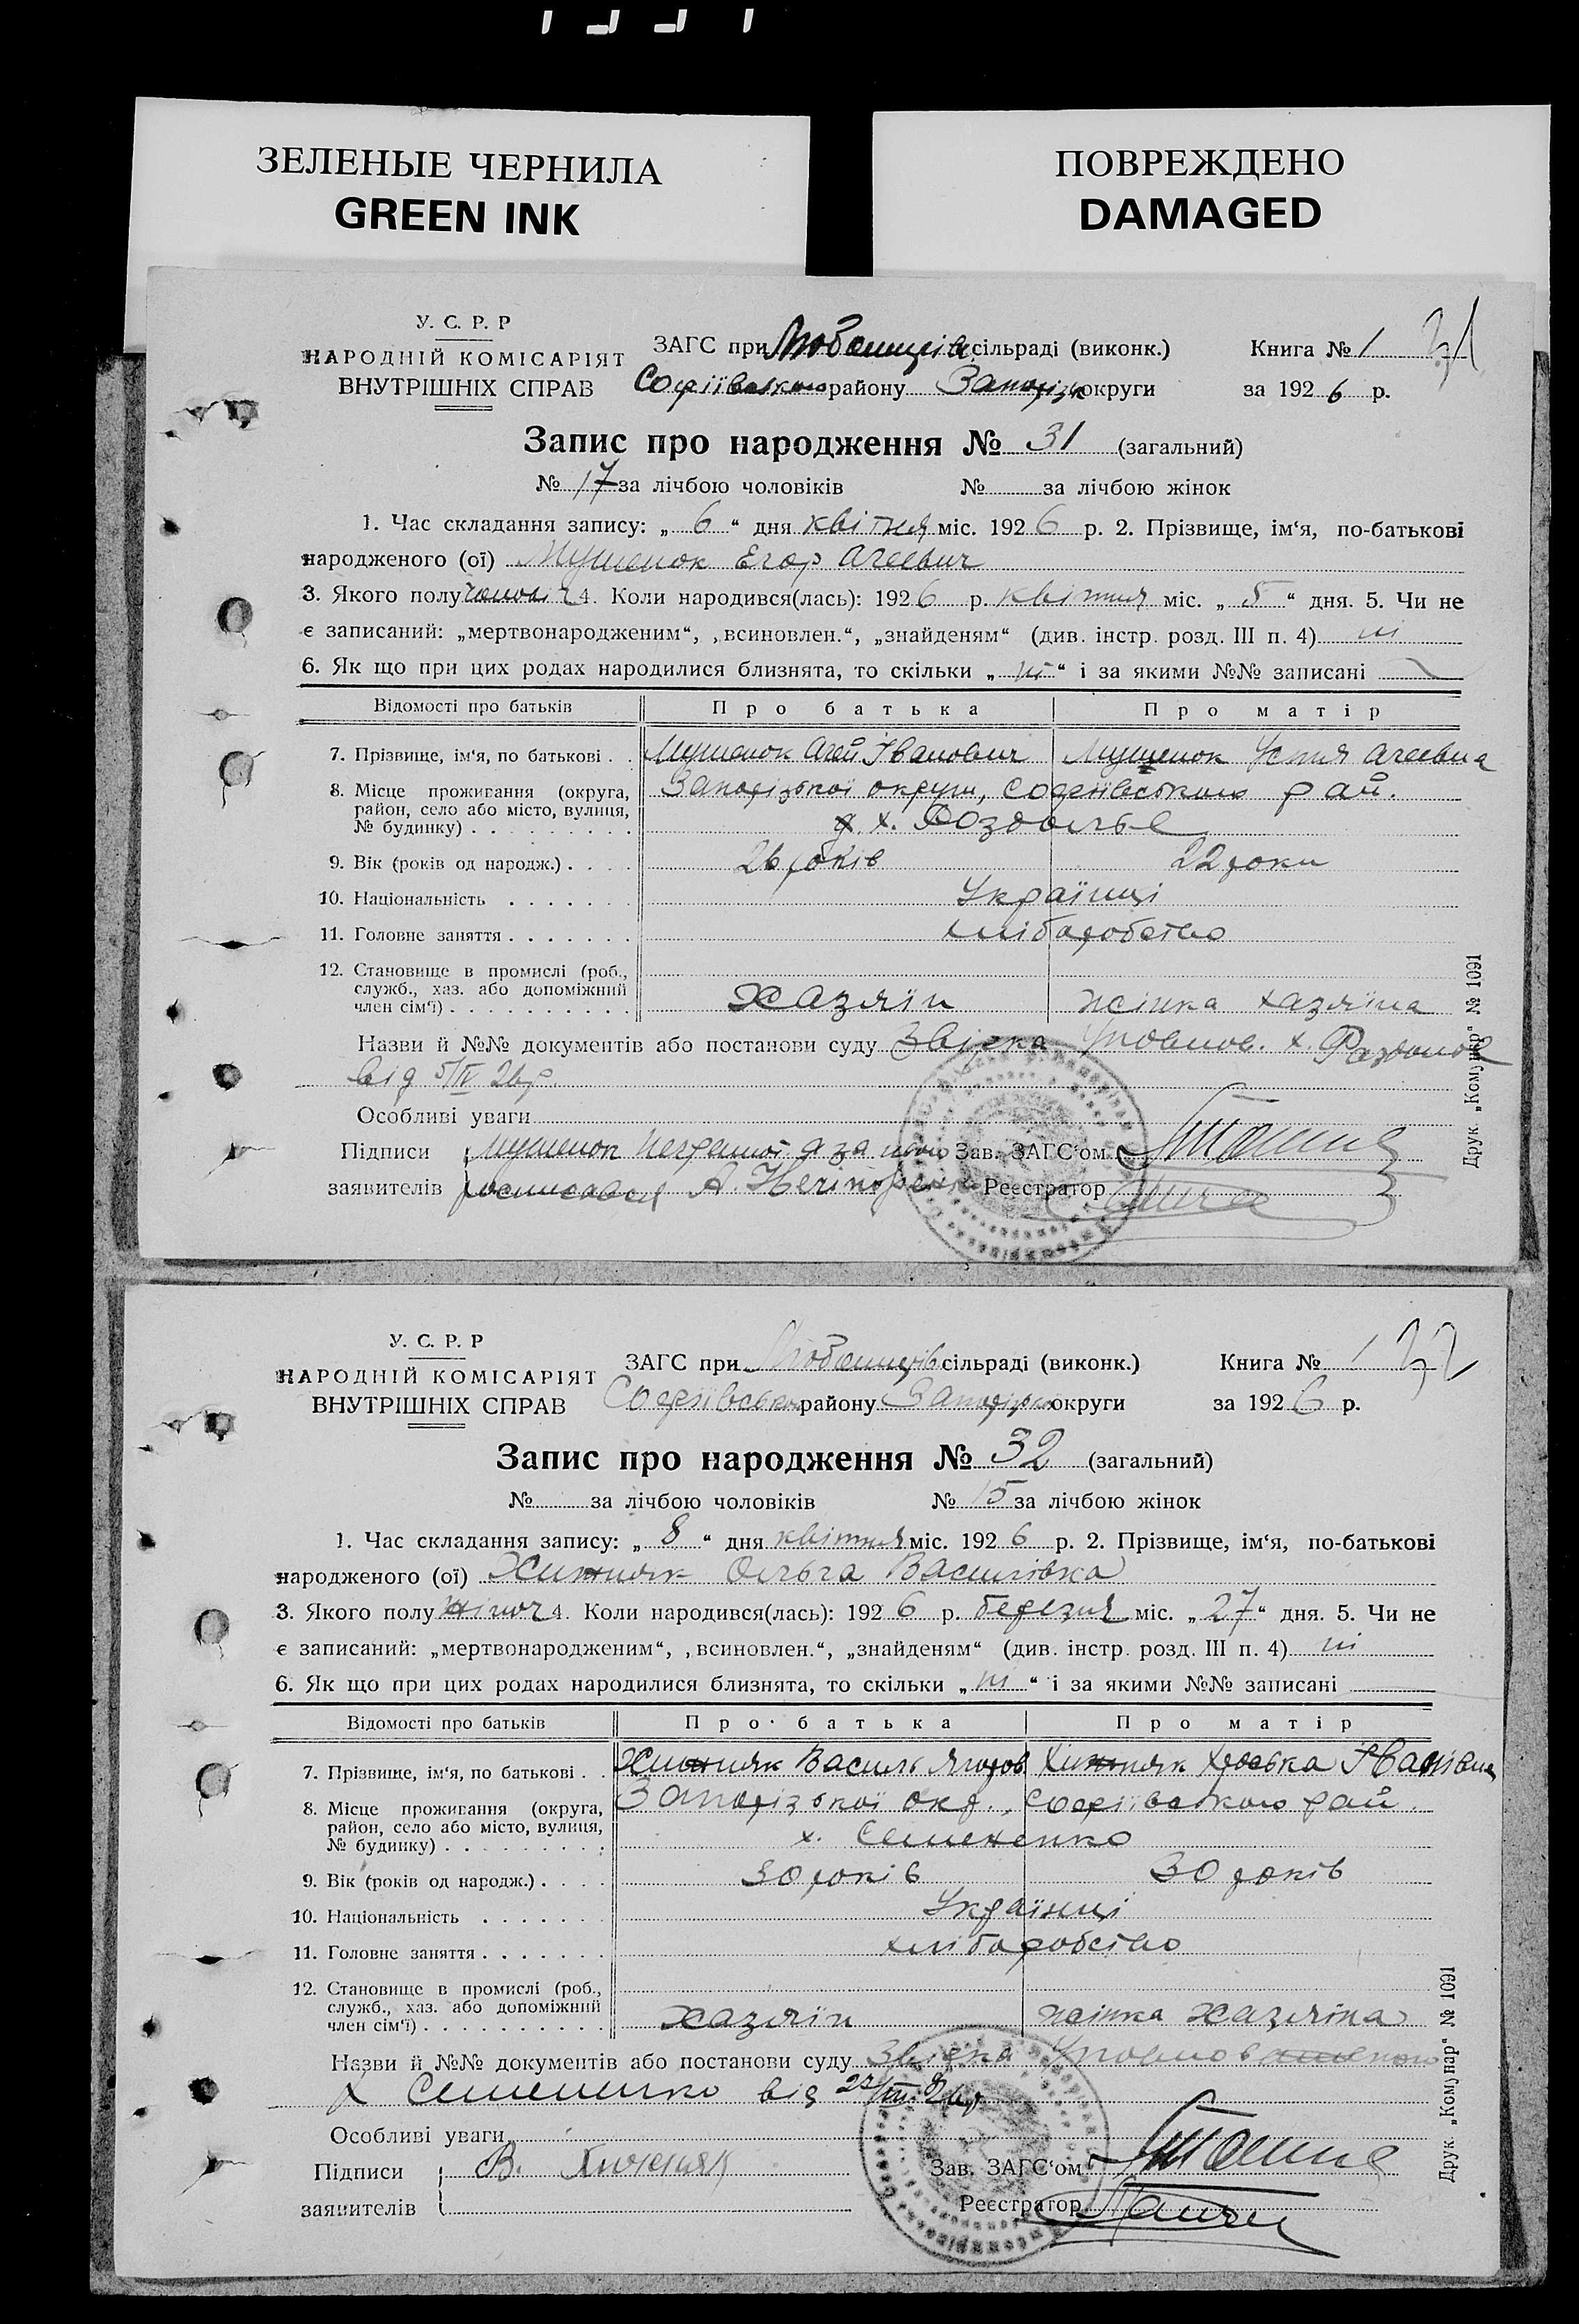 ЗЕЛЕНЫЕ ЧЕРНИЛА
GREEN INK
ПОВРЕЖДЕНО
DAMAGED
У. С. Р. Р
НАРОДНІЙ КОМІСАРІЯТ
ВНУТРІШНІХ СПРАВ
ЗАГС при сільраді (виконк.)
Софіївського району Запоріз округи
Книга № 1 31
за 1926 р.
Запис про народження № 31 (загальний)
№ 17 за лічбою чоловіків № за лічбою жінок
1. Час складання запису: „ 6 “ дня квітня міс. 1926 р. 2. Прізвище, ім‘я, по-батькові
народженого (ої) Мушенок Егор Агеевич
3. Якого полу чоловіч 4. Коли народився(лась): 1926 р. квітня міс. „ 5 “ дня. 5. Чи не
є записаний: „мертвонародженим“, „всиновлен.“, „знайденям“ (див. інстр. розд. III п. 4) ні
6. Як що при цих родах народилися близнята, то скільки „ ні “ і за якими №№ записані
Відомості про батьків Про батька Про матір
7. Прізвище, ім‘я, по батькові . . Мушенок Агей Іванович Мушенок Устия Агеевна
8. Місце проживання (округа, район, село або місто, вулиця, № будинку) . . . . . . . . . Запорізької округи, Софиівського рай.
х. Роздолье
9. Вік (років од народж.) . . . . 26 років 22 роки
10. Національність . . . . . . . Українці
11. Головне заняття . . . . . . . хліборобство
12. Становище в промислі (роб., служб., хаз. або допоміжний член сім‘ї) . . . . . . . . . . хазяїн жінка хазяїна
Назви й №№ документів або постанови суду Звідка Уповнов. х. Раздолье
від 5/IV 26р.
Особливі уваги
Підписи Мушенок неграмот а за нього
заявителів росписався А. Нечіпоренко
Зав. ЗАГС‘ом
Реєстратор
Друк. „Комунар“ № 1091
У. С. Р. Р
НАРОДНІЙ КОМІСАРІЯТ
ВНУТРІШНІХ СПРАВ
ЗАГС при сільраді (виконк.)
Софіївськ району Запоріз округи
Книга № 1 32
за 1926 р.
Запис про народження № 32 (загальний)
№ за лічбою чоловіків № 15 за лічбою жінок
1. Час складання запису: „ 8 “ дня квітня міс. 1926 р. 2. Прізвище, ім‘я, по-батькові
народженого (ої) Хижняк Ольга Василівка
3. Якого полу жіноч 4. Коли народився(лась): 1926 р. березня міс. „ 27 “ дня. 5. Чи не
є записаний: „мертвонародженим“, „всиновлен.“, „знайденям“ (див. інстр. розд. III п. 4) ні
6. Як що при цих родах народилися близнята, то скільки „ ні “ і за якими №№ записані
Відомості про батьків Про батька Про матір
7. Прізвище, ім‘я, по батькові . . Хижняк Василь Хижняк Іванівна
8. Місце проживання (округа, район, село або місто, вулиця, № будинку) . . . . . . . . . Запорізької окр., Софіівського рай.
х. Семененко
9. Вік (років од народж.) . . . . 30 років 30 років
10. Національність . . . . . . . Українці
11. Головне заняття . . . . . . . хліборобство
12. Становище в промислі (роб., служб., хаз. або допоміжний член сім‘ї) . . . . . . . . . . хазяїн жінка хазяїна
Назви й №№ документів або постанови суду Звідка
х Семененко від
Особливі уваги
Підписи В. Хижняк
заявителів
Зав. ЗАГС‘ом
Реєстратор
Друк. „Комунар“ № 1091